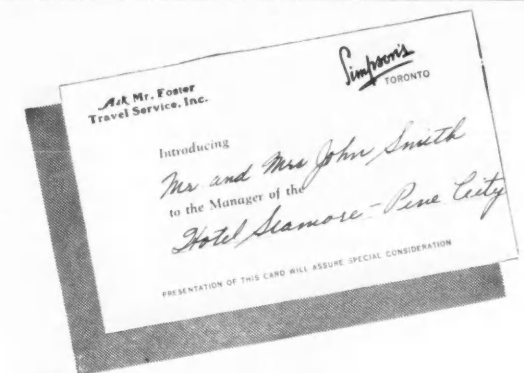 Ask Mr. Foster
Travel Service, Inc.
Simpson's
TORONTO
Introducing
Mr and Mrs John Smith
to the Manager of the
Hotel Seamore - Pine City
PRESENTATION OF THIS CARD WILL ASSURE SPECIAL CONSIDERATION